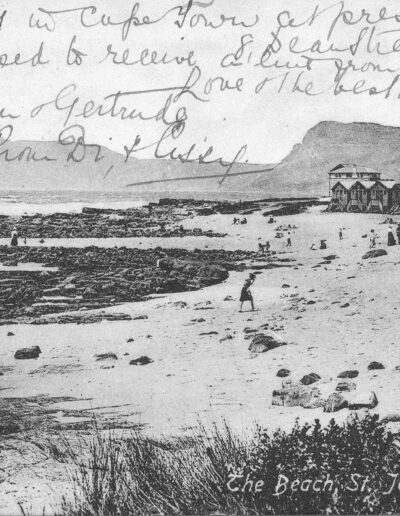 in Cape Town at pres
sed to receive a line from
8 Dean Stre
Love & the best
& Gertrude
From Di, & Cissy.
The Beach, St. J